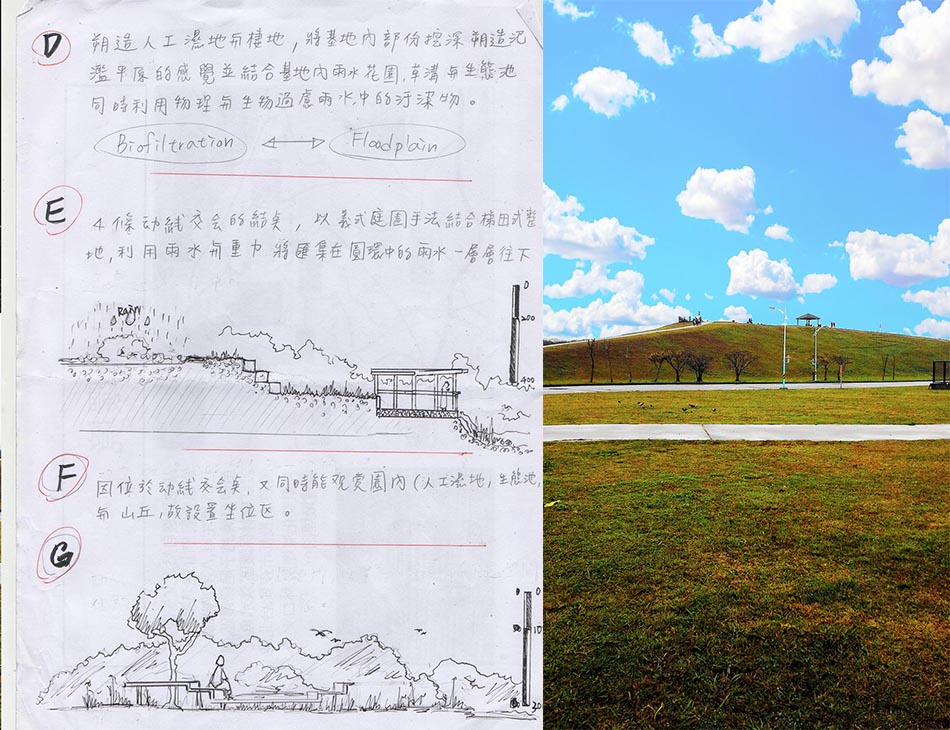 D
塑造人工濕地与棲地，將基地內部份挖深塑造氾
濫平原的感覺並結合基地內雨水花園，草溝与生態池
同時利用物理与生物過慮雨水中的汙染物。
Biofiltration ↔ Floodplain
E
4條动线交会的結点，以義式庭園手法結合梯田式整
地，利用雨水与重力將匯集在園環中的雨水一層層往下
RAIN
0
200
400
F
因位於动线交会点，又同時能观賞園內(人工濕地，生態池，
与山丘，故設置坐位区。
G
0
10
30